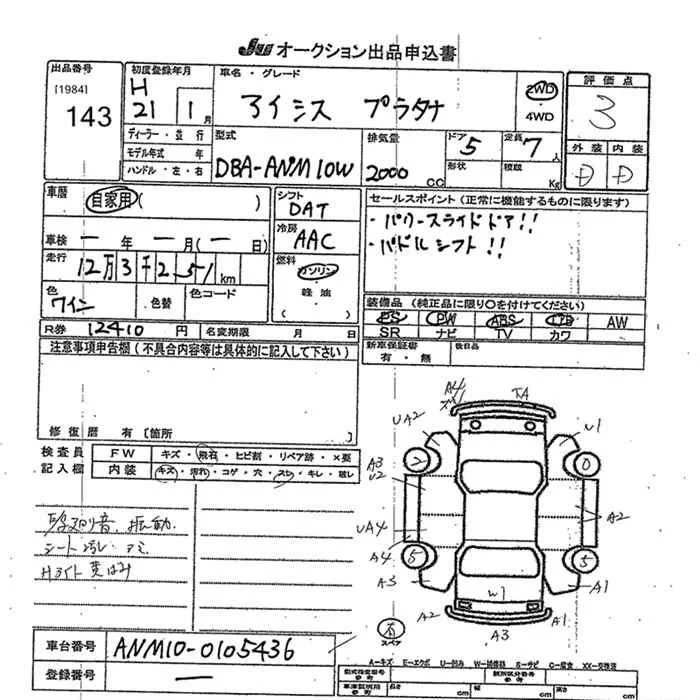 JU オークション出品申込書
出品番号
[1984]
143
初度登録年月
H
21 年 1 月
車名・グレード
アイシス プラタナ
2WD
・
4WD
評価点
3
外装 内装
D D
ディーラー・並行
モデル年式 年
ハンドル・左・右
型式
DBA-ANM10W
排気量
2000 CC
ドア 5
形状
定員 7 人
積載 Kg
車歴
自家用( )
車検 ー 年 ー 月(ー日)
走行
12万3千251 km
色
ワイン
色替
色コード
シフト
DAT
冷房
AAC
燃料
ガソリン
・
軽油
( )
セールスポイント(正常に機能するものに限ります)
・パワースライドドア!!
・パドルシフト!!
装備品(純正品に限り○を付けてください)
PS PW ABS エアB AW
SR ナビ TV カワ
R券 12410 円 名変期限 月 日
新車保証書
有・無
後日品
注意事項申告欄(不具合内容等は具体的に記入して下さい)
修復歴 有 [箇所 ]
検査員
記入欄
FW キズ・飛石・ヒビ割・リペア跡・×要
内装 キズ・汚れ・コゲ・穴・スレ・キレ・破レ
音、振動.
シート汚レ・
Hライト黄ばみ
A4
TA
UA2
U1
A3
U2
0
UA4
A2
A4
5
5
A3
A1
W1
A2
A3
A1
スペア
車台番号 ANM10-0105436
登録番号 ー
A-キズ E-エクボ U-凹み W-補修跡 S-サビ C-腐食 XX-交換済
型式指定番号
参考
類別区分番号
参考
車庫証明用
参考
長さ cm 幅 cm 高さ cm